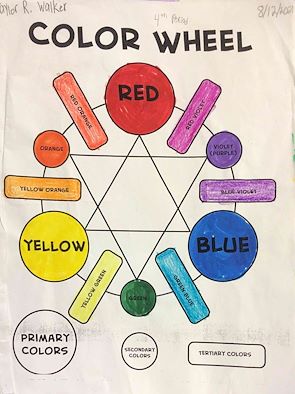 Taylor R. Walker
4th Period
8/12/20
COLOR WHEEL
RED
RED ORANGE
RED VIOLET
ORANGE
VIOLET
(PURPLE)
YELLOW ORANGE
BLUE VIOLET
YELLOW
BLUE
YELLOW GREEN
GREEN
GREEN BLUE
PRIMARY
COLORS
SECONDARY
COLORS
TERTIARY COLORS